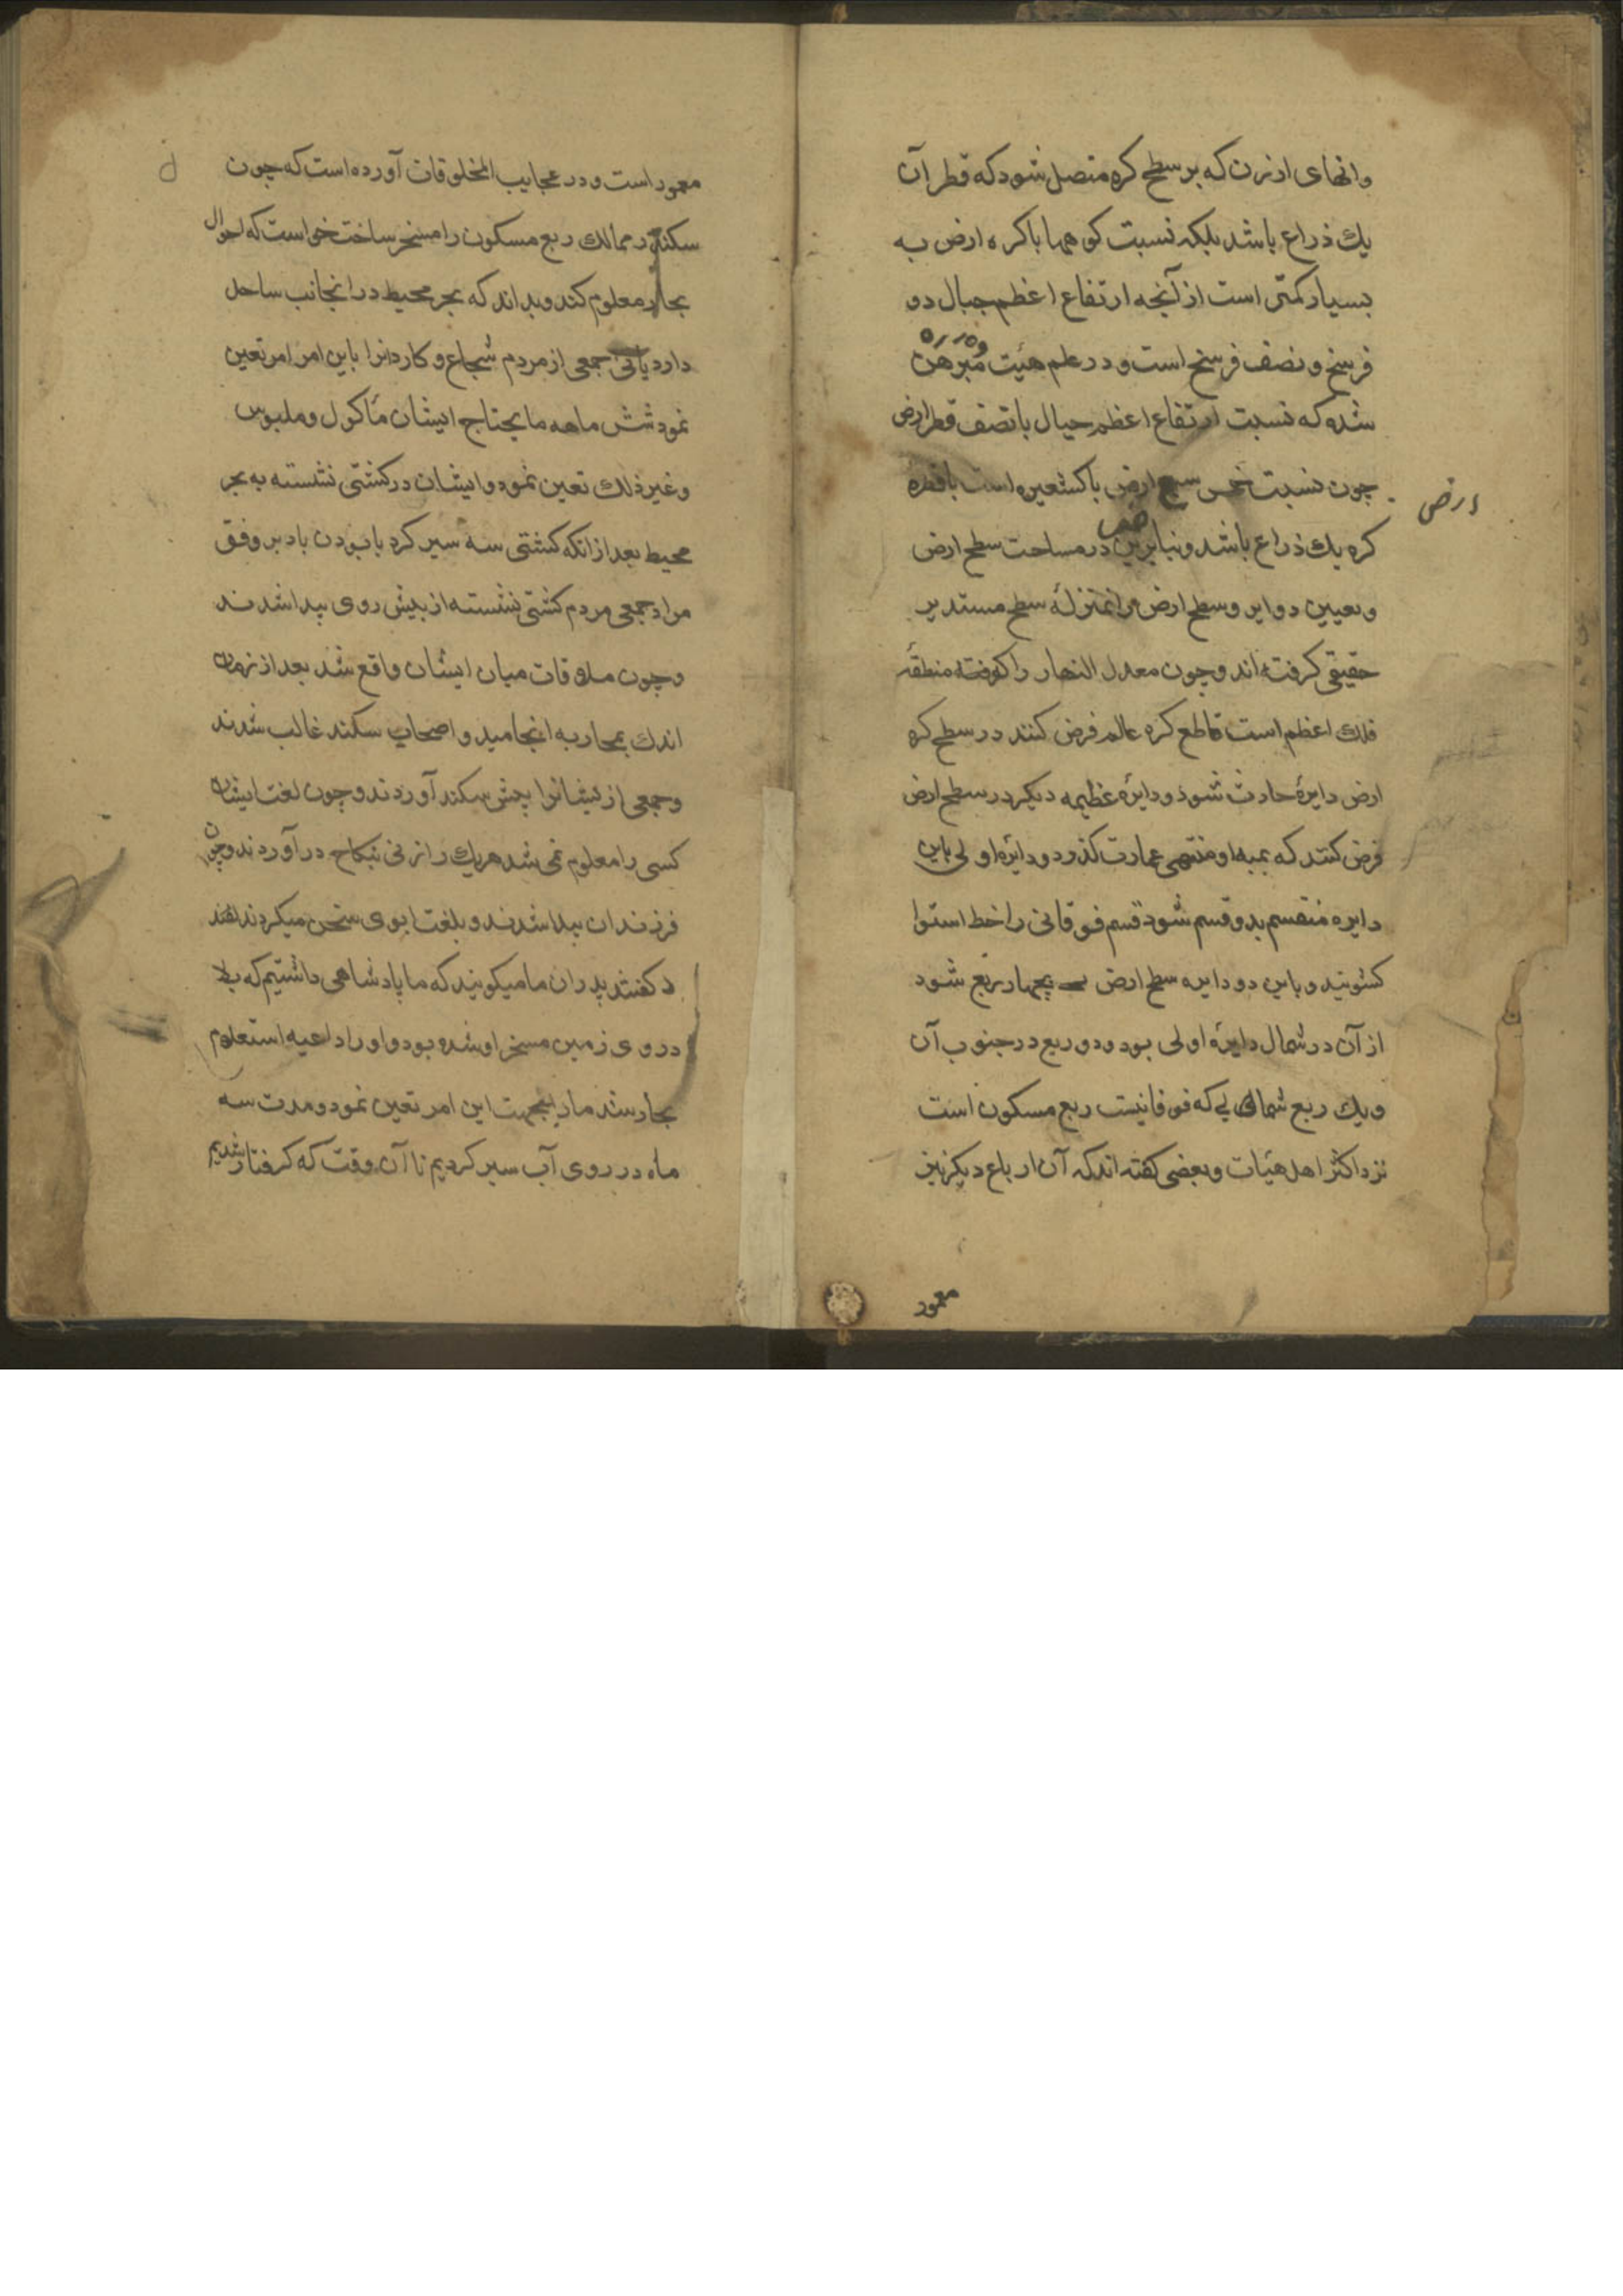 وانهای ارزن که بر سطح کره متصل شود که قطر آن
یك ذراع باشد بلکه نسبت کوهها با کره ارض به
بسیار کمتر است از آنجه ارتفاع اعظم جبال دو
فرسخ و نصف فرسخ است و در علم هیئت مبرهن
شده که نسبت ارتفاع اعظم جبال با نصف قطر ارض
چون نسبت خمس سبع ارض با کشعیره است با قطره
ارض
کره یك ذراع باشد و بنابرین در مساحت سطح ارض
وتعیین دوایر وسطح ارض را بمنزلهٔ سطح مستدیر
حقیقی کرفته اند وچون معدل النهار را که منطقهٔ
فلك اعظم است قاطع کره عالم فرض کنند در سطح کره
ارض دایرهٔ حادث شود و دایرهٔ عظیمه دیکر در سطح ارض
فرض کنند که بمبداو منتهی عمارت کذرد و دایرهٔ اولی باین
دایره منقسم بدو قسم شود قسم فوقانی را خط استوا
کویند و باین دو دایره سطح ارض بچهار ربع شود
از آن در شمال دایرهٔ اولی بود و دو ربع در جنوب آن
ویك ربع شمالی که فوقانیست ربع مسکون است
نزد اکثر اهل هیئات وبعضی کفته اند که آن ارباع دیکر نیز
معمور
معمور است و در عجایب المخلوقات آورده است که چون
سکندر ممالك ربع مسکون را مسخر ساخت خواست که احوال
بحار معلوم کند وبداند که بحر محیط در انجانب ساحل
دارد یانی جمعی از مردم شجاع و کاردانرا باین امر امر تعین
نمود شش ماهه مایحتاج ایشان ماکول وملبوس
وغیر ذلك تعین نمود وایشان در کشتی نشسته به بحر
محیط بعد از انکه کشتی سه سیر کرد با بودن باد بر وفق
مراد جمعی مردم کشتی نشسته از پیش روی پیدا شدند
وچون ملاقات میان ایشان واقع شد بعد از زمان
اندك بمحاربه انجامید و اصحاب سکند غالب شدند
وجمعی از ایشانرا پیش سکند آوردند وچون لغت ایشان
کسی را معلوم نمی شد هر یك را زنی بنکاح در آوردند وچون
فرزندان پیدا شدند و بلغت ابوی سخن میکردند
کفتند پدران ما میکویند که ما پادشاهی داشتیم که بلاد
در روی زمین مسخر او شده بود و او را داعیه استعلام
بحار شد ما را بجهت این امر تعین نمود و مدت سه
ماه در روی آب سیر کردیم تا آن وقت که کرفتار شدیم